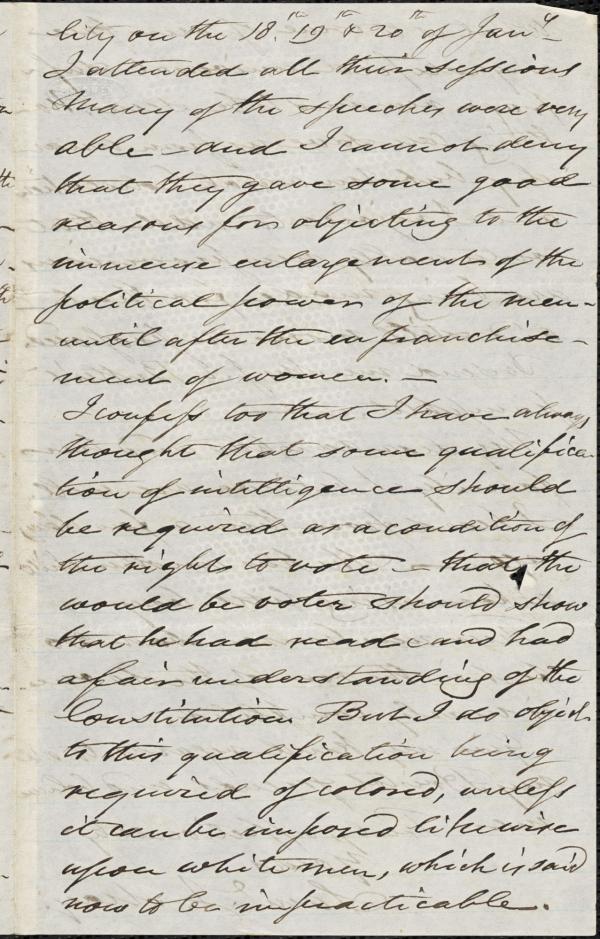 lity on the 18. 19th & 20th of Jany
I attended all their sessions
Many of the speeches were very
able – and I cannot deny
that they gave some good
reasons for objecting to the
immense enlargement of the
political power of the men –
until after the enfranchise-
ment of women. –
I confess too that I have always
thought that some qualifica-
tion of intelligence should
be required as a condition of
the right to vote. – that the
would be voter should show
that he had read and had
a fair understanding of the
Constitution. But I do object
to this qualification being
required of colored, unless
it can be imposed likewise
upon white men, which is said
now to be impracticable.